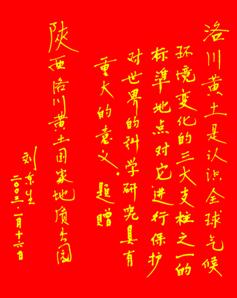 洛川黄土是认识全球气候
环境变化的三大支柱之一的
标準地点对它进行保护
对世界的科学研究具有
重大的意义。题赠
陕西洛川黄土国家地质公园
刘东生
二〇〇三、一月十六日